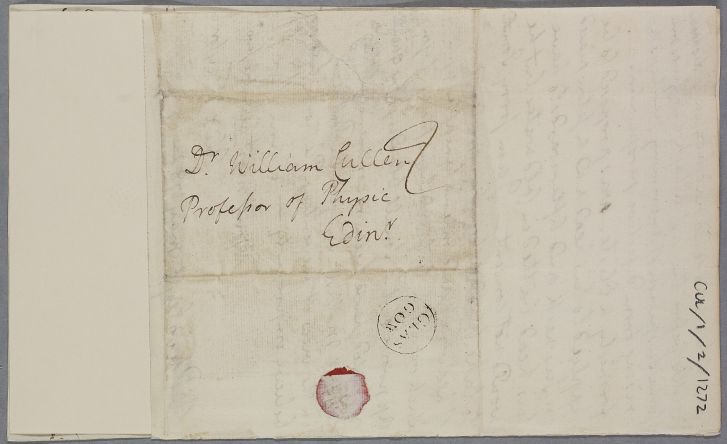 Dr. William Cullen
Profeſsor of Physic
Edinr.
GLAS
GOW
CUL/1/2/1272